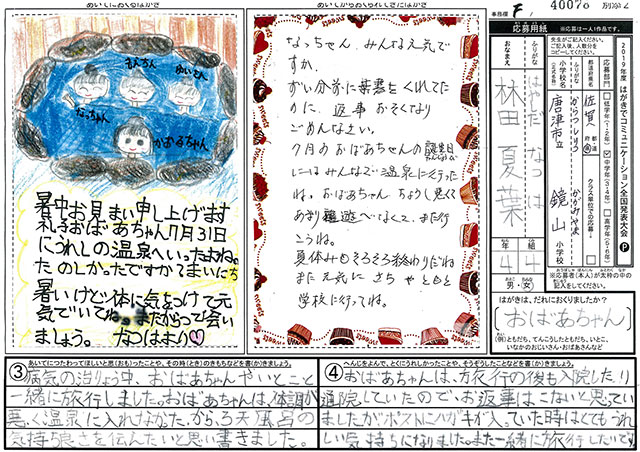 めいしにおくるはがき
めいしからおくられてきたはがき
なっちゃん
かおるちゃん
暑中お見まい申し上げます
おばあちゃん7月31日
にうれしの温泉へいったよね。
たのしかったですか?まいにち
暑いけど体に気をつけて元
気でいてね。またからつで会い
ましょう。 なつはより♡
なっちゃん、みんな元気です
か。
ずい分前に葉書をくれてた
のに、返事おそくなり
ごめんなさい。
7月のおばあちゃんの誕生日
にはみんなで温泉に行った
ね。おばあちゃんちょうし悪くて
あまり遊べなくて、また行
こうね。
夏休みもそろそろ終わりだね
また元気に
学校に行ってね。
事務欄 F
応募用紙
※応募は一人1作品です。
2019年度 はがきでコミュニケーション全国発表大会 P
応募部門
低学年(1・2年)
中学年(3・4年)
高学年(5・6年)
都道府県名
佐賀
都 道 府 県
小学校名
からつしりつ
唐津市立
かがみやま
鏡山
小学校
クラス単位での応募
ふりがな
おなまえ
はやし だ なつは
林田夏葉
4 年
4 組
男・女
※応募者(本人)が太枠の中の
記入をしてください。
はがきは、だれにおくりましたか?
(おばあちゃん)
(例)ともだち、てんこうしたともだち、いとこ、
いなかのおじいさん・おばあさんなど
③ あいてにつたわってほしいと思(おも)ったことや、その時(とき)のきもちなどを書(か)きましょう。
病気の治りょう中、おばあちゃんやいとこと
一緒に旅行しました。おばあちゃんは、体調が
悪く温泉に入れなかったから、ろ天風呂の
気持ち良さを伝えたいと思い書きました。
④ へんじをよんで、とくにうれしかったことや、そうぞうしたことなどを書(か)きましょう。
おばあちゃんは、旅行の後も入院したり
通院していたので、お返事はこないと思ってい
ましたがポストにハガキが入っていた時はとてもうれ
しい気持ちになりました。また一緒に旅行したいです。